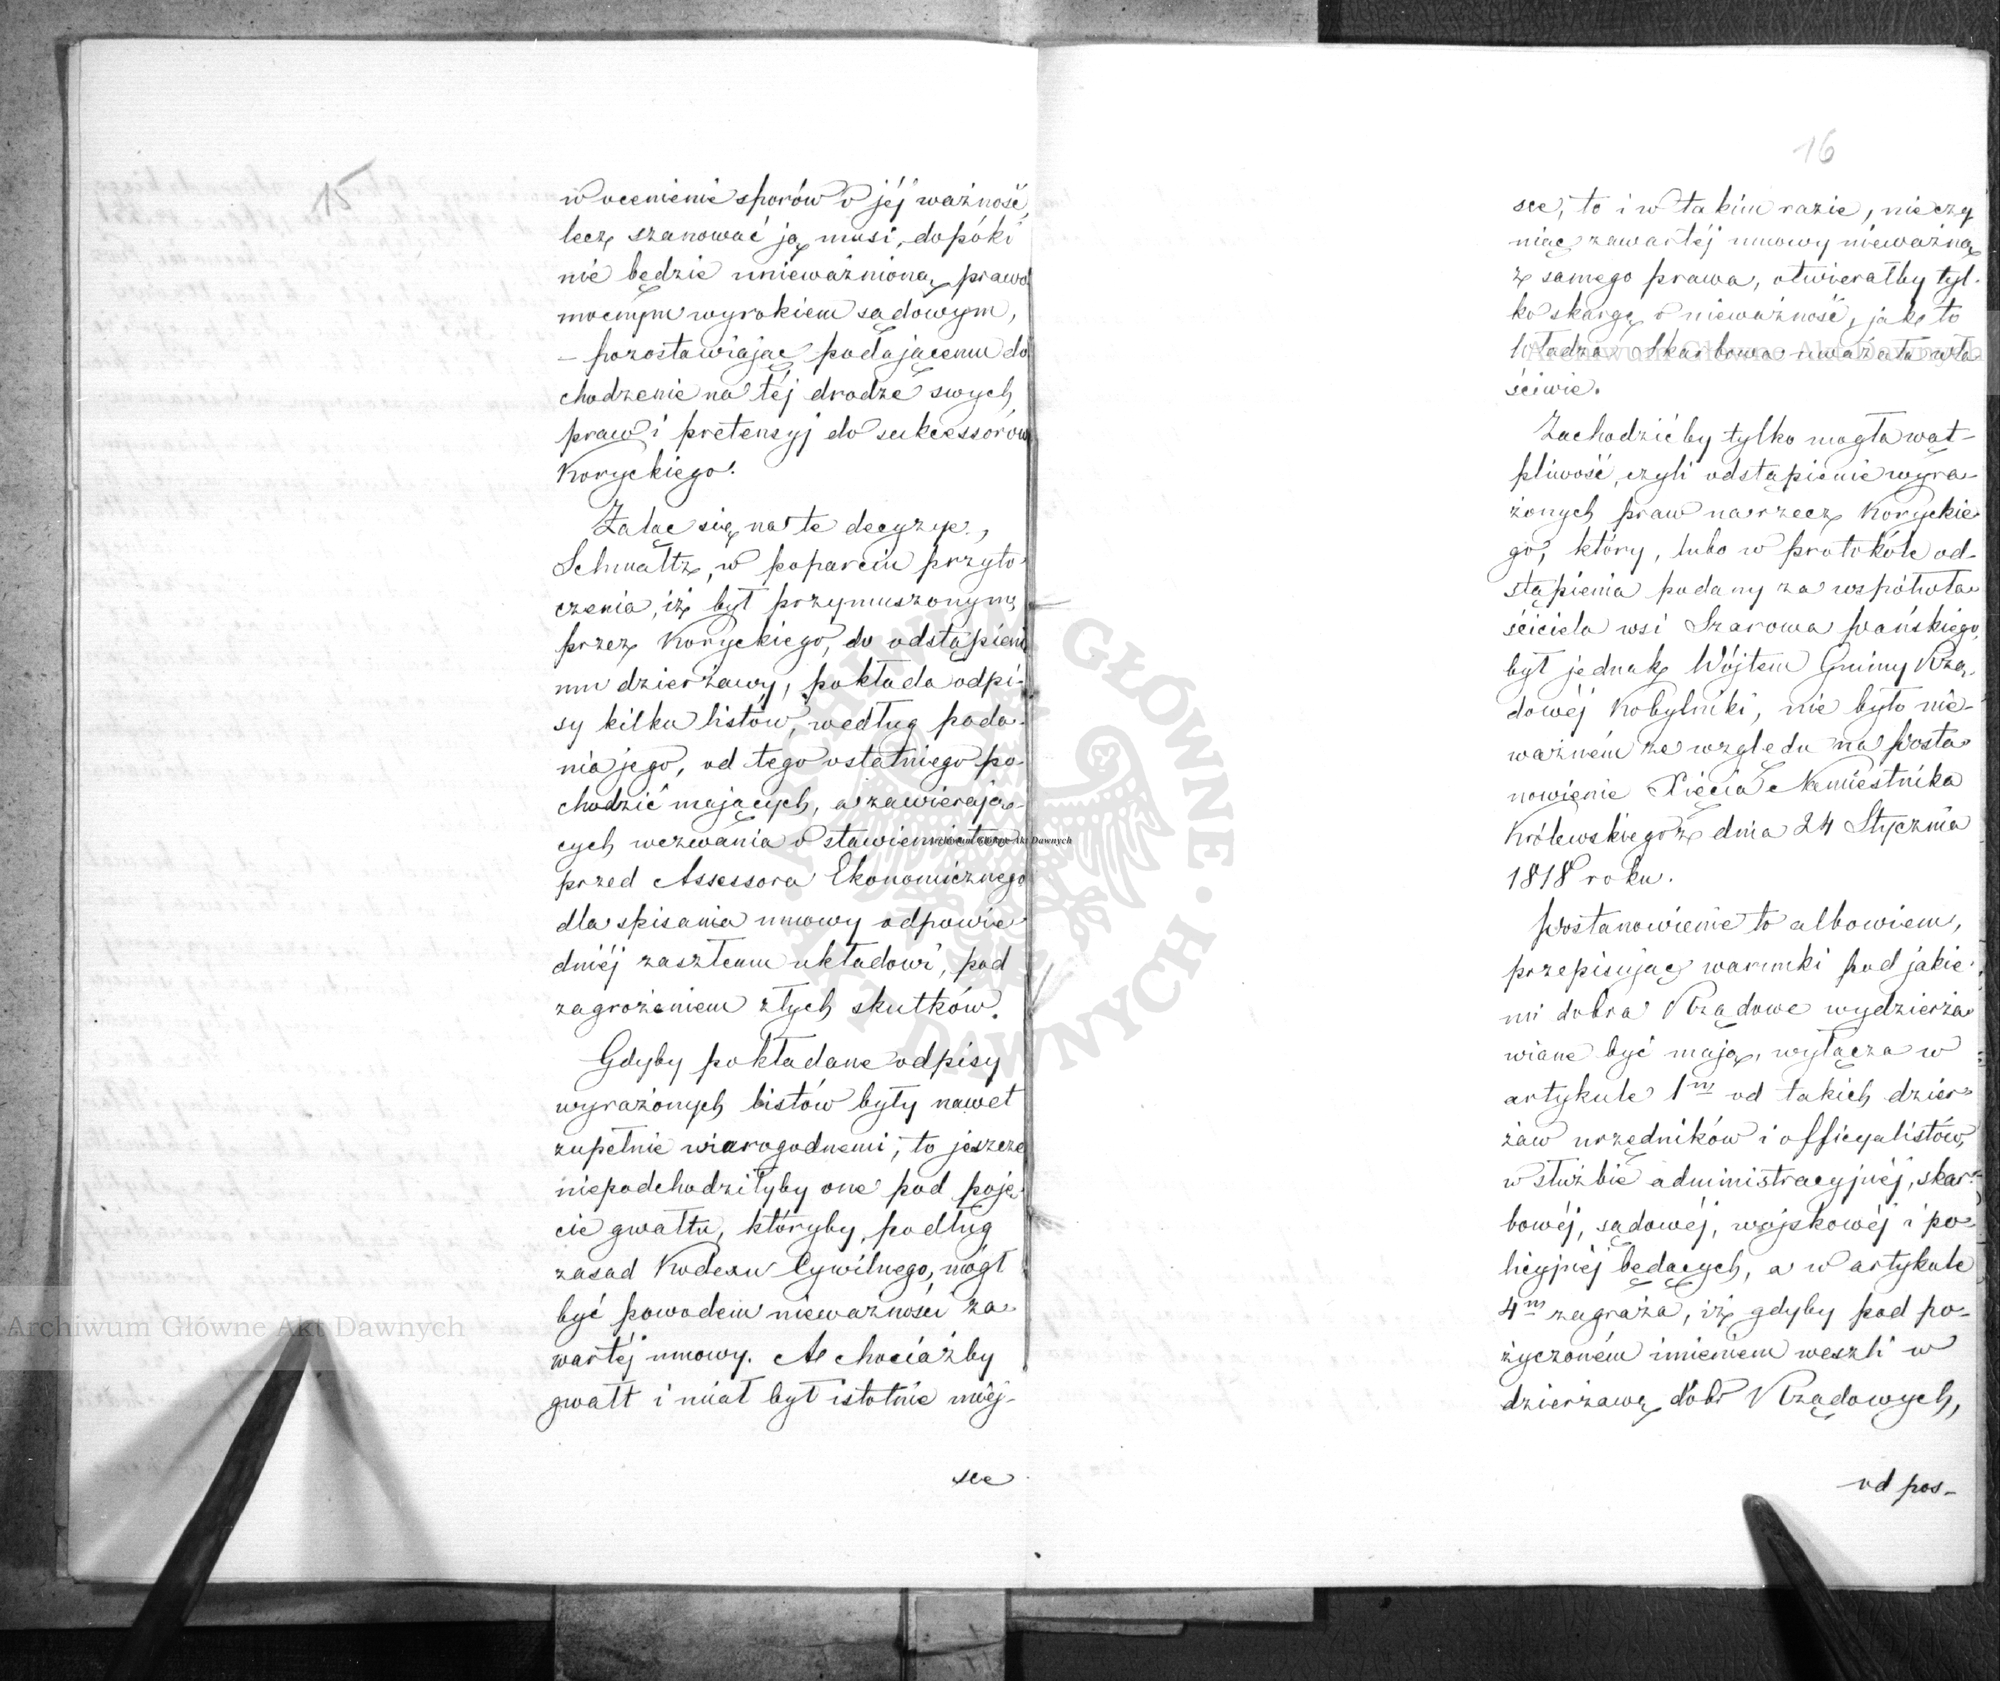 15
w ocenienie sporów o jéj ważność,
lecz szanować ją musi, dopóki
nie będzie unieważnioną prawo
mocnym wyrokiem sądowym,
– pozostawiając podającemu do
chodzenie na téj drodze swych
praw i pretensyj do sukcessorów
Koryckiego.
Żaląc się na te decyzye,
Schmaltz, w poparciu przyto
czenia, iż był przymuszonym
przez Koryckiego, do odstąpieni
mu dzierżawy, pokłada odpi-
sy kilku listów, według poda-
nia jego, od tego ostatniego po-
chodzić mających, a zawierają-
cych wezwania o stawienie
przed Assessora Ekonomicznego
dla spisania umowy odpowie
dniéj zaszłemu układowi, pod
zagrożeniem złych skutków.
Gdyby pokładane odpisy
wyrażonych listów były nawet
zupełnie wiarogodnemi, to jeszcze
niepodchodziłyby one pod poję-
cie gwałtu, któryby, podług
zasad Kodexu Cywilnego, mógł
być powodem nieważności za-
wartéj umowy. A chociażby
gwałt i miał być istotnie miej-
sce
16
sce, to i w takim razie, nie czy
niąc zawartéj umowy nieważną
z samego prawa, otwierałby tyl-
ko skargę o nieważność, jak to
Władza Skarbowa uważała wła
ściwie.
Zachodzićby tylko mogła wąt-
pliwość, czyli odstąpienie wyra-
żonych praw na rzecz Koryckie
go, który, lubo w protokóle od-
stąpienia podany za współwła-
ściciela wsi Szarowa Pańskiego,
był jednak Wójtem Gminy Rzą-
dowéj Kobylniki, nie było nie-
ważném ze względu na Posta-
nowienie Xięcia Namiestnika
Królewskiego z dnia 24 Stycznia
1818 roku.
Postanowienie to albowiem,
przepisując warunki pod jakie-
mi dobra Rządowe wydzierża-
wiane być mają, wyłącza w
artykule 1m od takich dzier-
żaw urzędników i officyalistów,
w służbie administracyjnéj, skar-
bowéj, sądowéj, wojskowéj i po-
licyjnéj będących, a w artykule
4m zagraża, iż gdyby pod po-
życzoném imieniem weszli w
dzierżawę dóbr Rządowych,
od pos-
Archiwum Główne Akt Dawnych
Archiwum Główne Akt Dawnych
Archiwum Główne Akt Dawnych
ARCHIWUM GŁÓWNE · AKT DAWNYCH ·